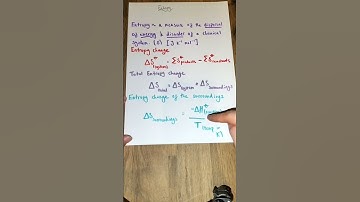 Entropy
Entropy is a measure of the dispersal
of energy & disorder of a chemical
system. (S) [J K⁻¹ mol⁻¹]
Entropy change
ΔS⦵(system) = ΣS⦵products - ΣS⦵reactants
Total Entropy change
ΔS total = ΔS system + ΔS surroundings
Entropy change of the surroundings
ΔS surroundings = -ΔH⦵
T (temp in
K)